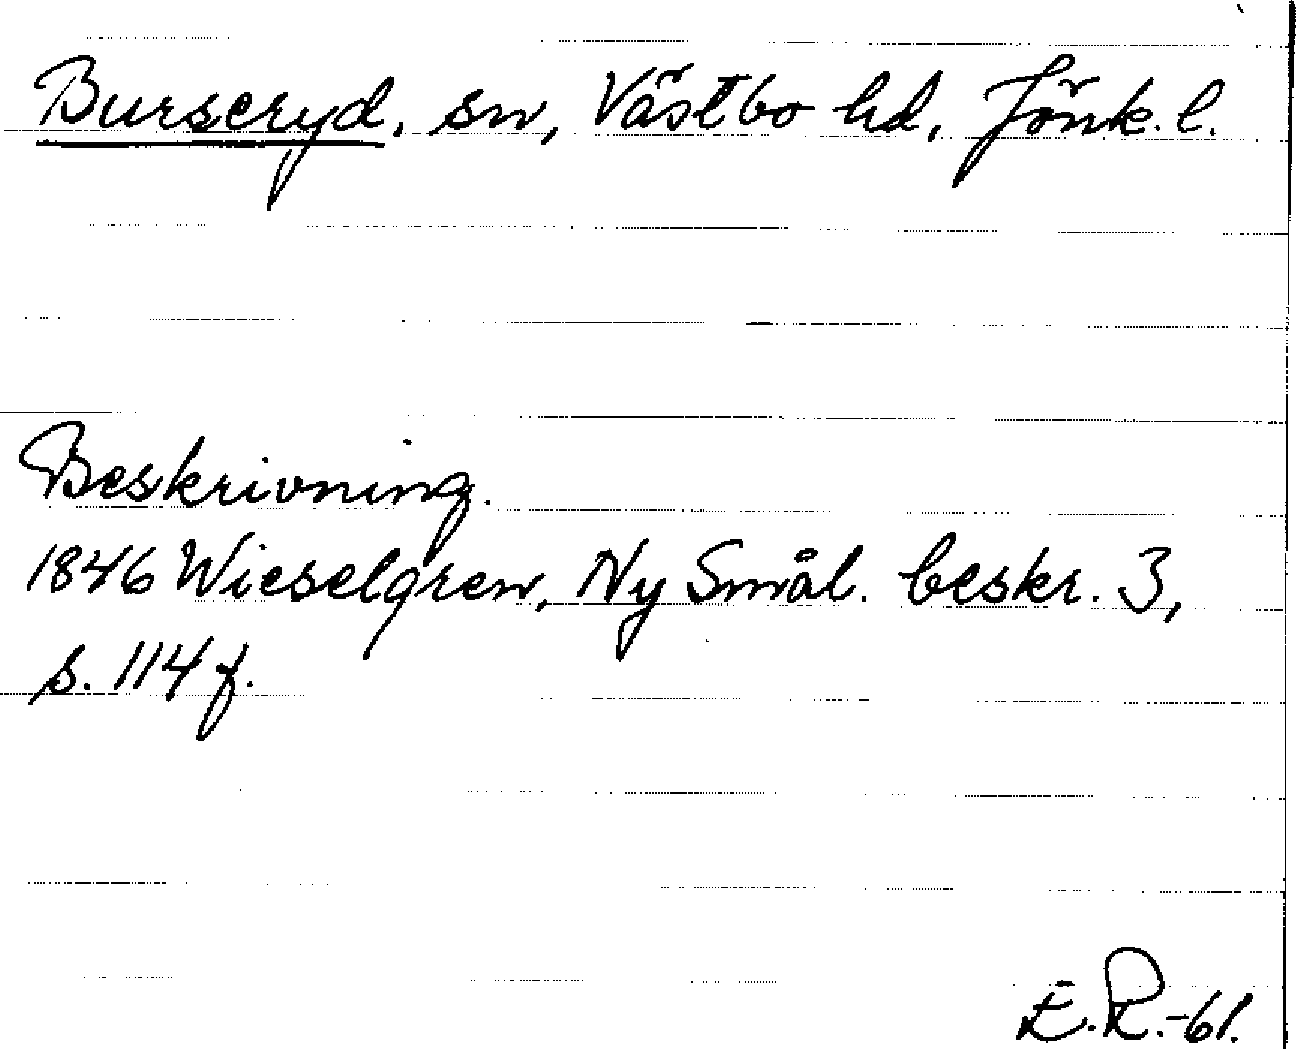 Burseryd, sn, Västbo hd, Jönk. l.
Beskrivning.
1846 Wieselgren, Ny Smål. beskr. 3,
s. 114 f.
E.R.-61.